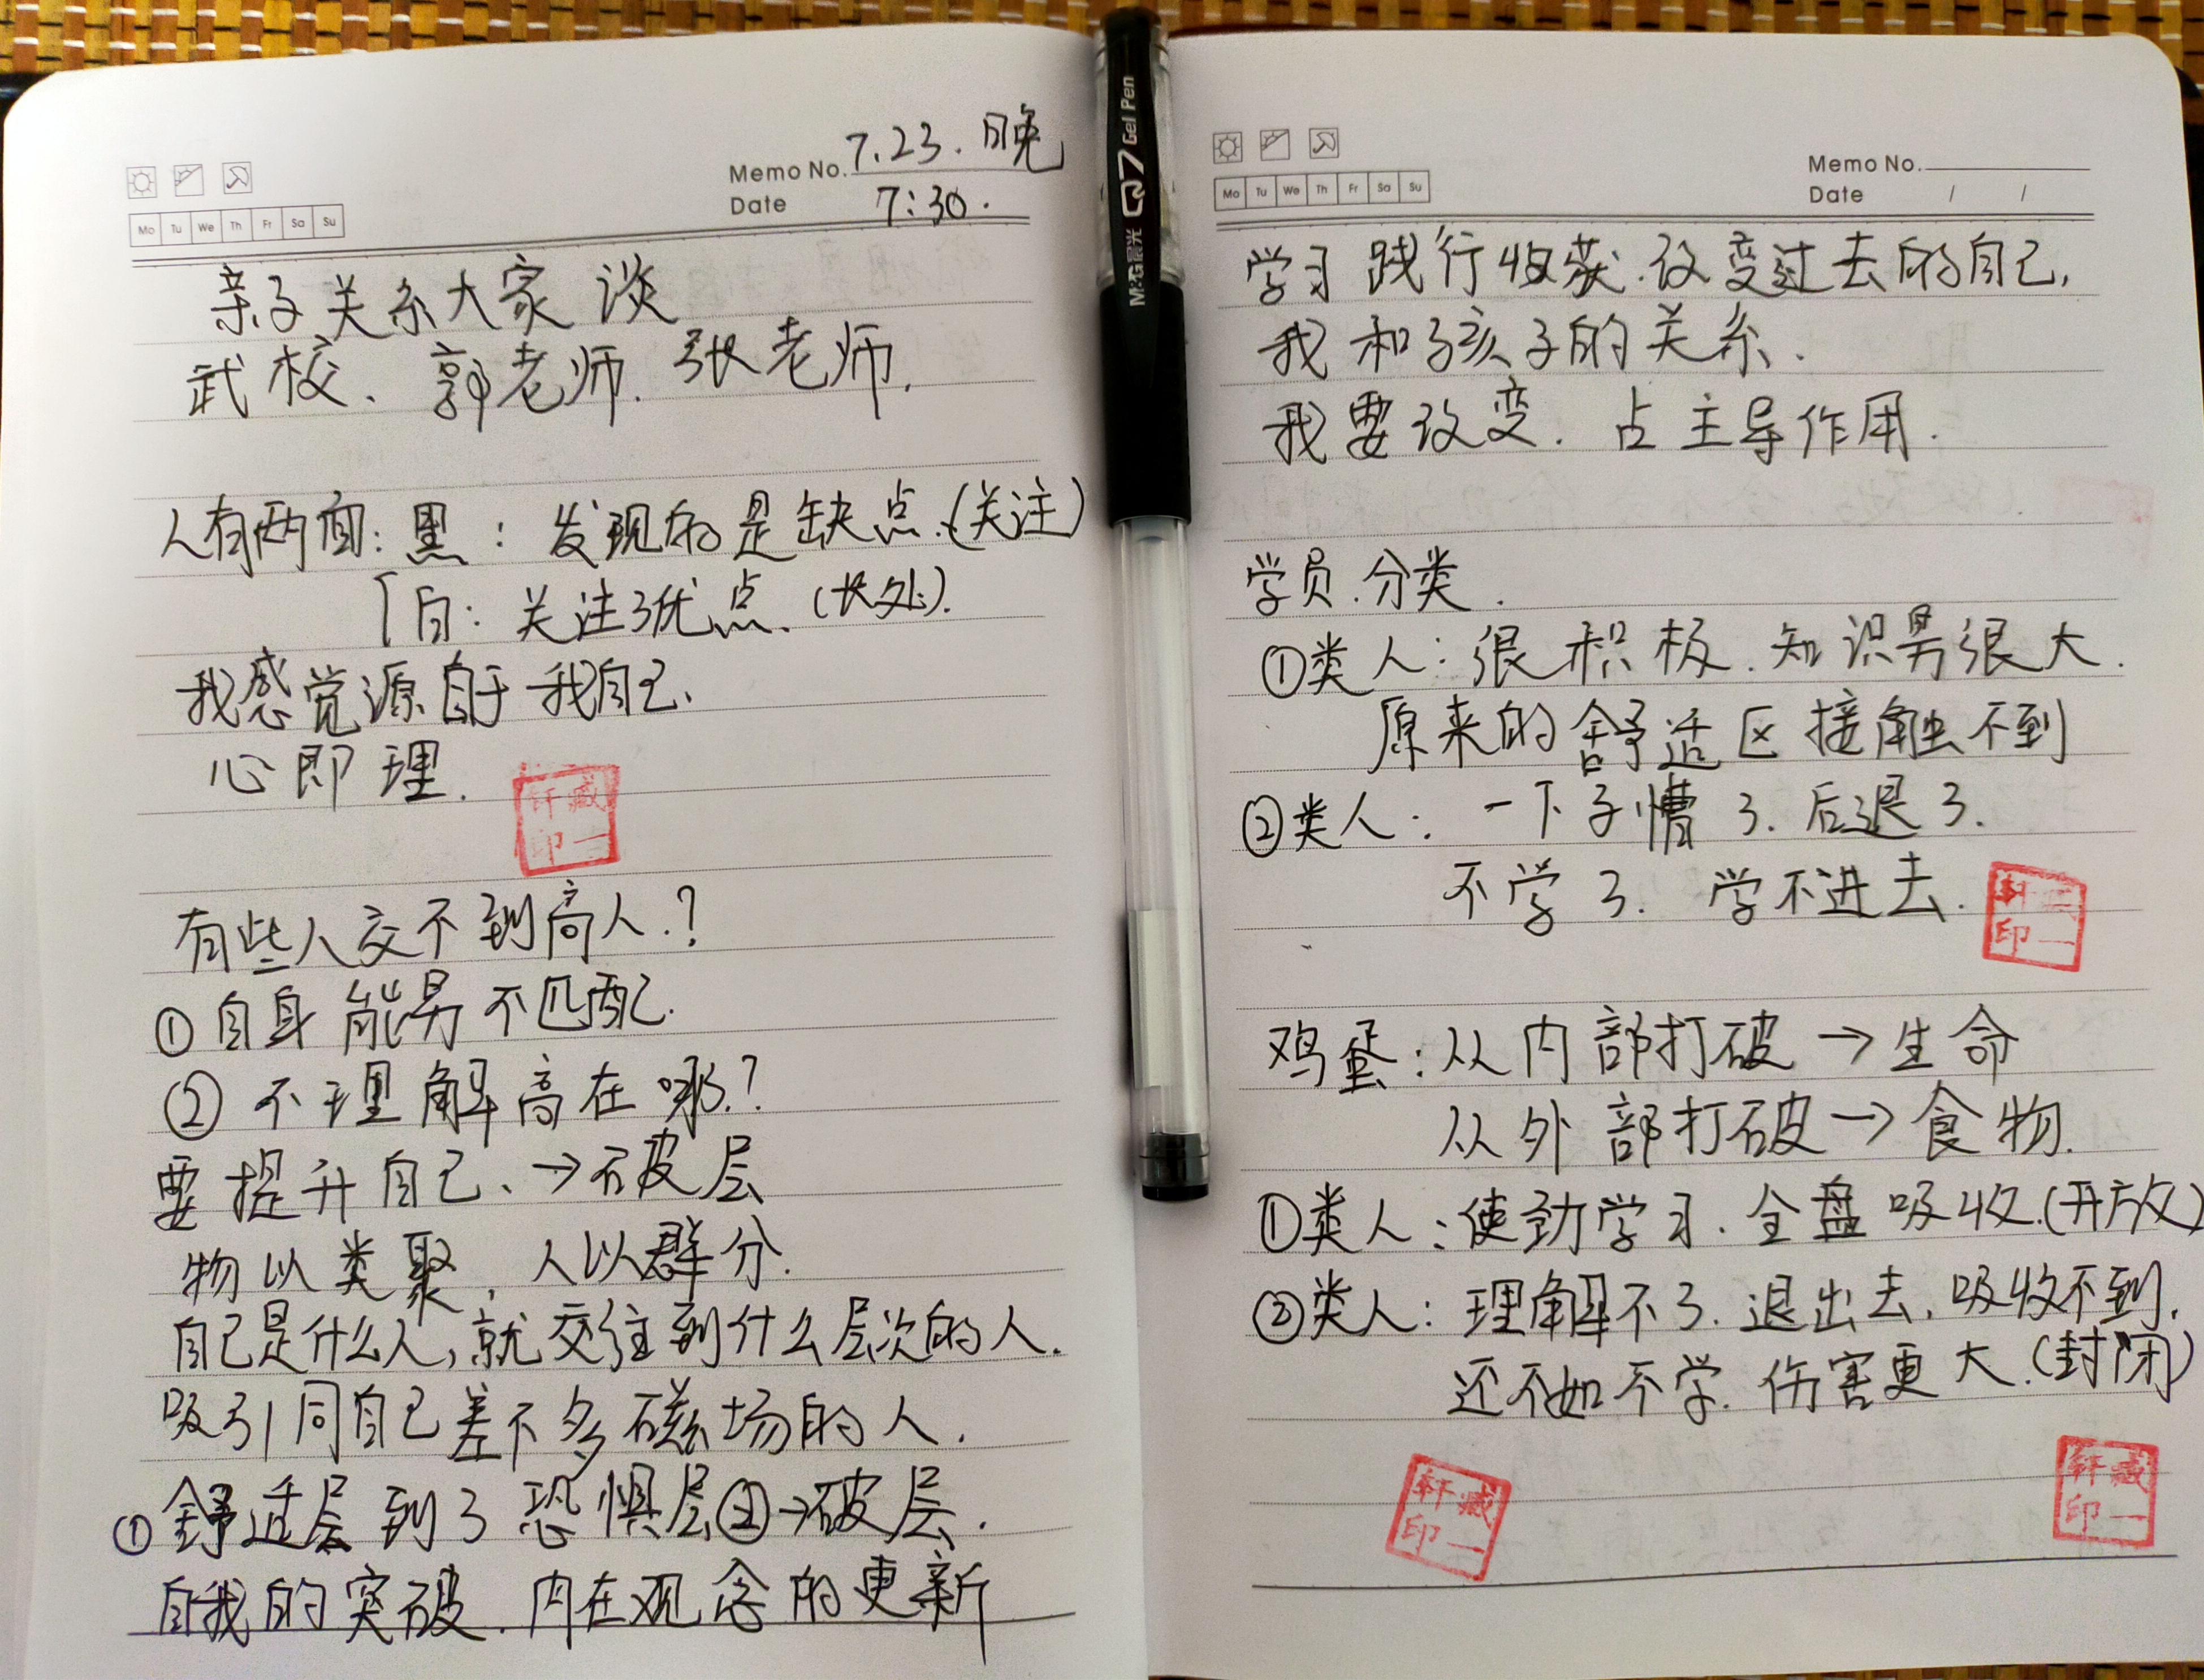 Memo No. 7.23.晚
Date 7:30.
Mo Tu We Th Fr Sa Su
亲子关系大家谈
武校、郭老师.张老师.
人有两面:黑:发现的是缺点.(关注)
白:关注了优点、(长处).
我感觉源自于我自己、
心即理.
轩臧
印一
有些人交不到高人.?
①自身能男不匹配.
②不理解高在哪.?
要提升自己、→破层
物以类聚,人以群分.
自己是什么人,就交往到什么层次的人.
吸引同自己差不多磁场的人.
①舒适层到了恐惧层②→破层.
自我的突破.内在观念的更新
M&G晨光 Q7 Gel Pen
Memo No.
Date / /
Mo Tu We Th Fr Sa Su
学习践行收获.改变过去的自己,
我和孩子的关系.
我要改变.占主导作用.
学员.分类.
①类人:很积极.知识男很大.
原来的舒适区接触不到
②类人:一下子懵了.后退了.
不学了.学不进去.
印一
鸡蛋:从内部打破→生命
从外部打破→食物.
①类人:使劲学习.全盘吸收.(开放)
②类人:理解不了.退出去.吸收不到.
还不如不学.伤害更大.(封闭)
轩臧
印一
轩臧
印一